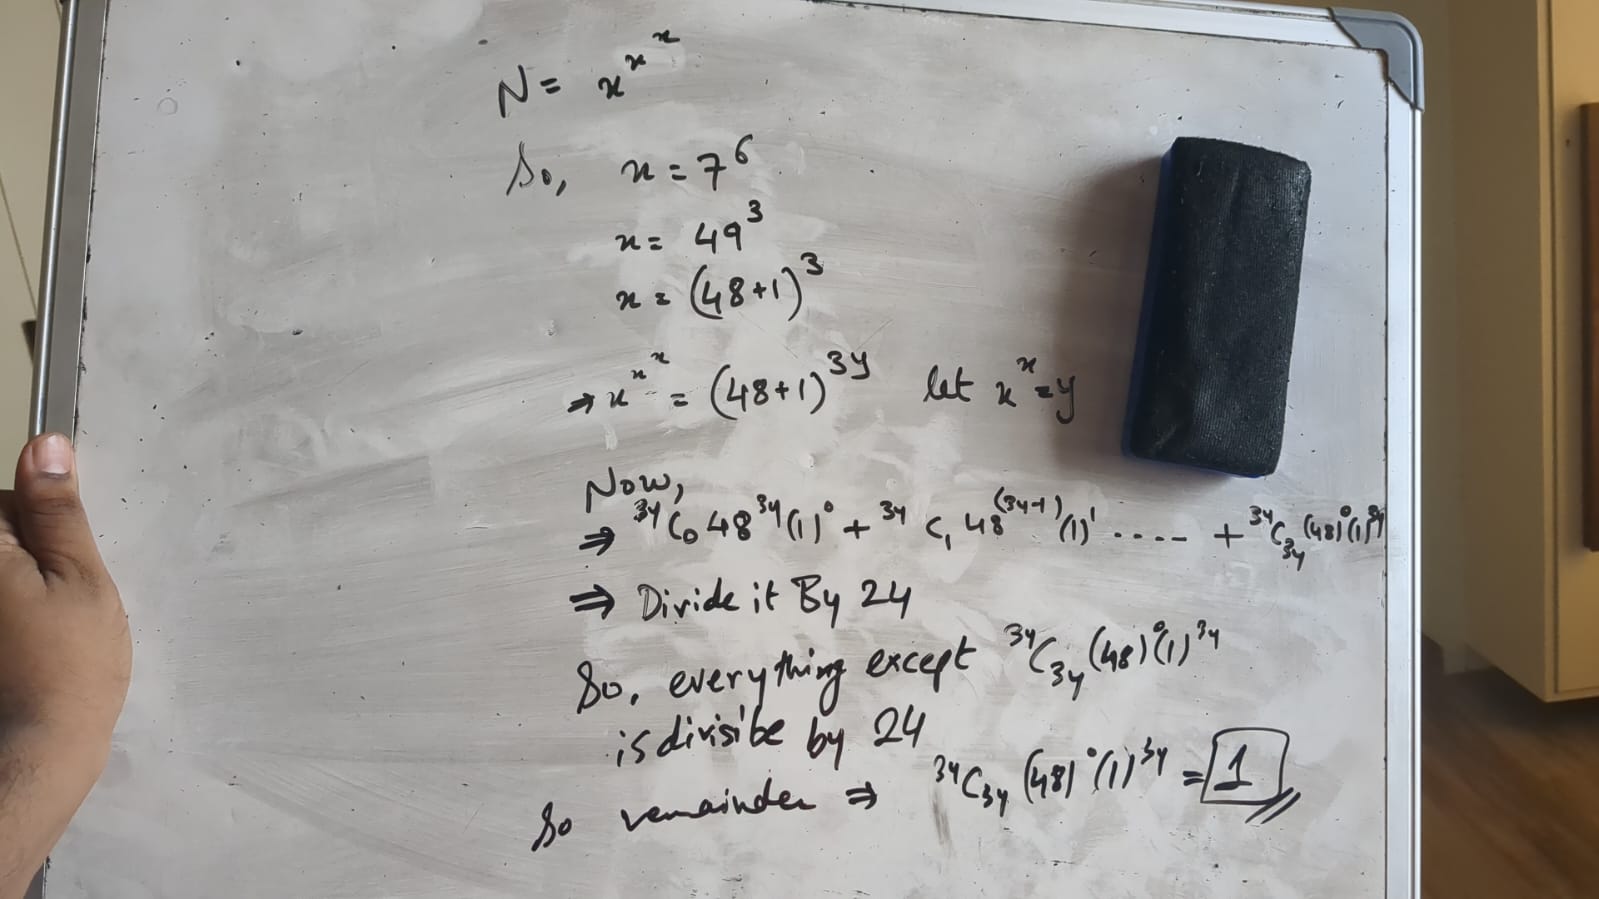 N = x^x^x
So, x = 7^6
x = 49^3
x = (48+1)^3
⇒ x^x^x = (48+1)^3y let x^x = y
Now,
⇒ ^3yC_0 48^3y (1)^0 + ^3yC_1 48^(3y-1) (1)^1 ..... + ^3yC_3y (48)^0 (1)^3y
⇒ Divide it By 24
So, everything except ^3yC_3y (48)^0 (1)^3y
is divisibe by 24
So remainder ⇒ ^3yC_3y (48)^0 (1)^3y = 1